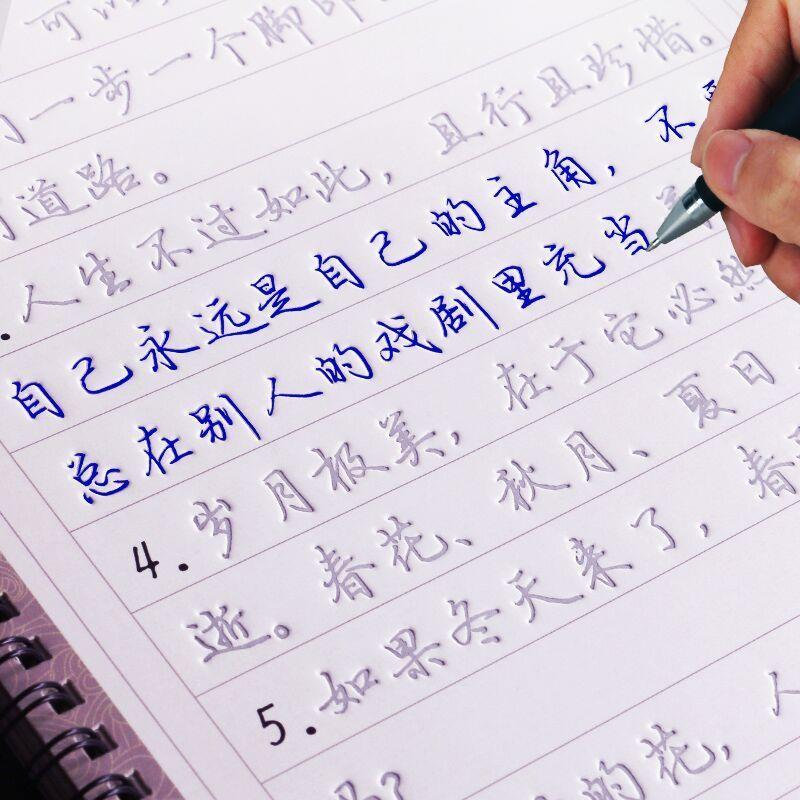 可以
一步一个脚印
道路。
人生不过如此，且行且珍惜。
自己永远是自己的主角，不
总在别人的戏剧里充当
4.岁月极美，在于它必然
逝。春花、秋月、夏日、
5.如果冬天来了，春
吗？的花，人